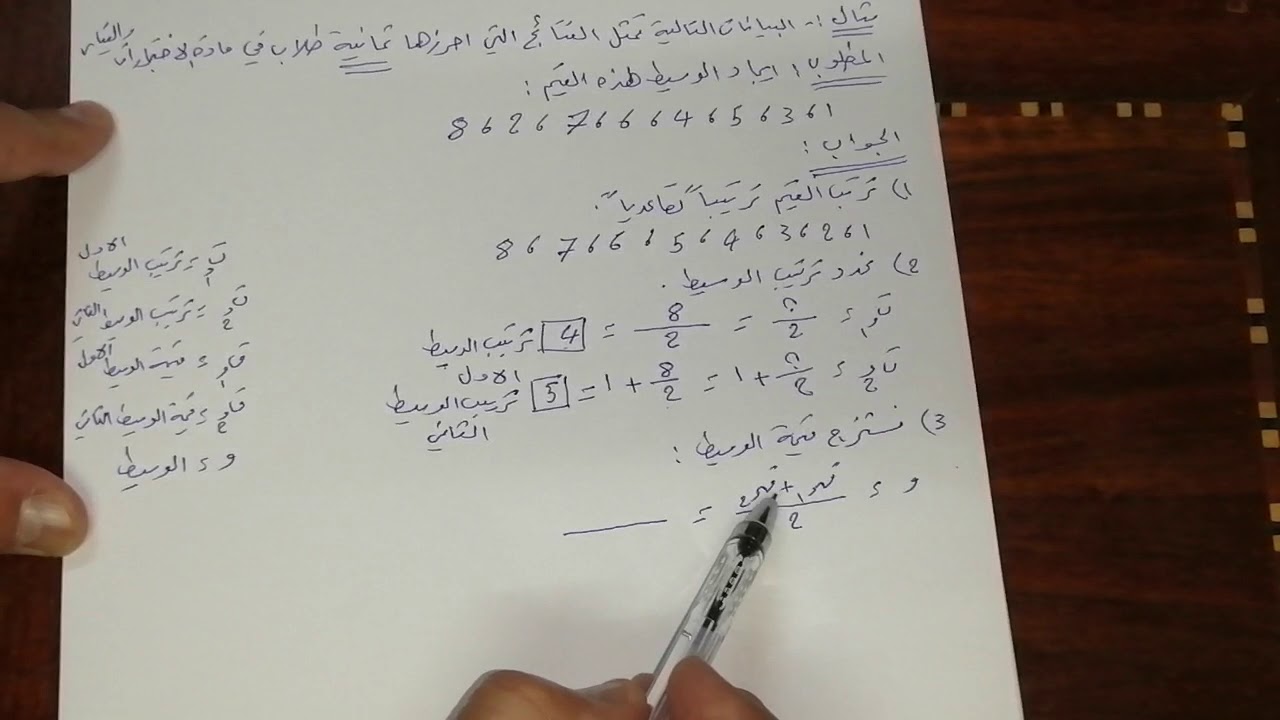 مثال :- البيانات التالية تمثل النتائج التي احرزها ثمانية طلاب في مادة الاختبارات والقياس
المطلوب : ايجاد الوسيط لهذه القيم :
1 ، 3 ، 5 ، 4 ، 6 ، 7 ، 2 ، 8
الجواب :
1) نرتب القيم ترتيباً تصاعدياً .
1 ، 2 ، 3 ، 4 ، 5 ، 6 ، 7 ، 8
2) نحدد ترتيب الوسيط .
= ن/2 = 8/2 = 4 ترتيب الوسيط الاول
= ن/2 + 1 = 8/2 + 1 = 5 ترتيب الوسيط الثاني
3) نستخرج قيمة الوسيط :
و = ق1 + ق2 / 2 =
= ترتيب الوسيط الاول
= ترتيب الوسيط الثاني
= قيمة الوسيط الاول
= قيمة الوسيط الثاني
و = الوسيط